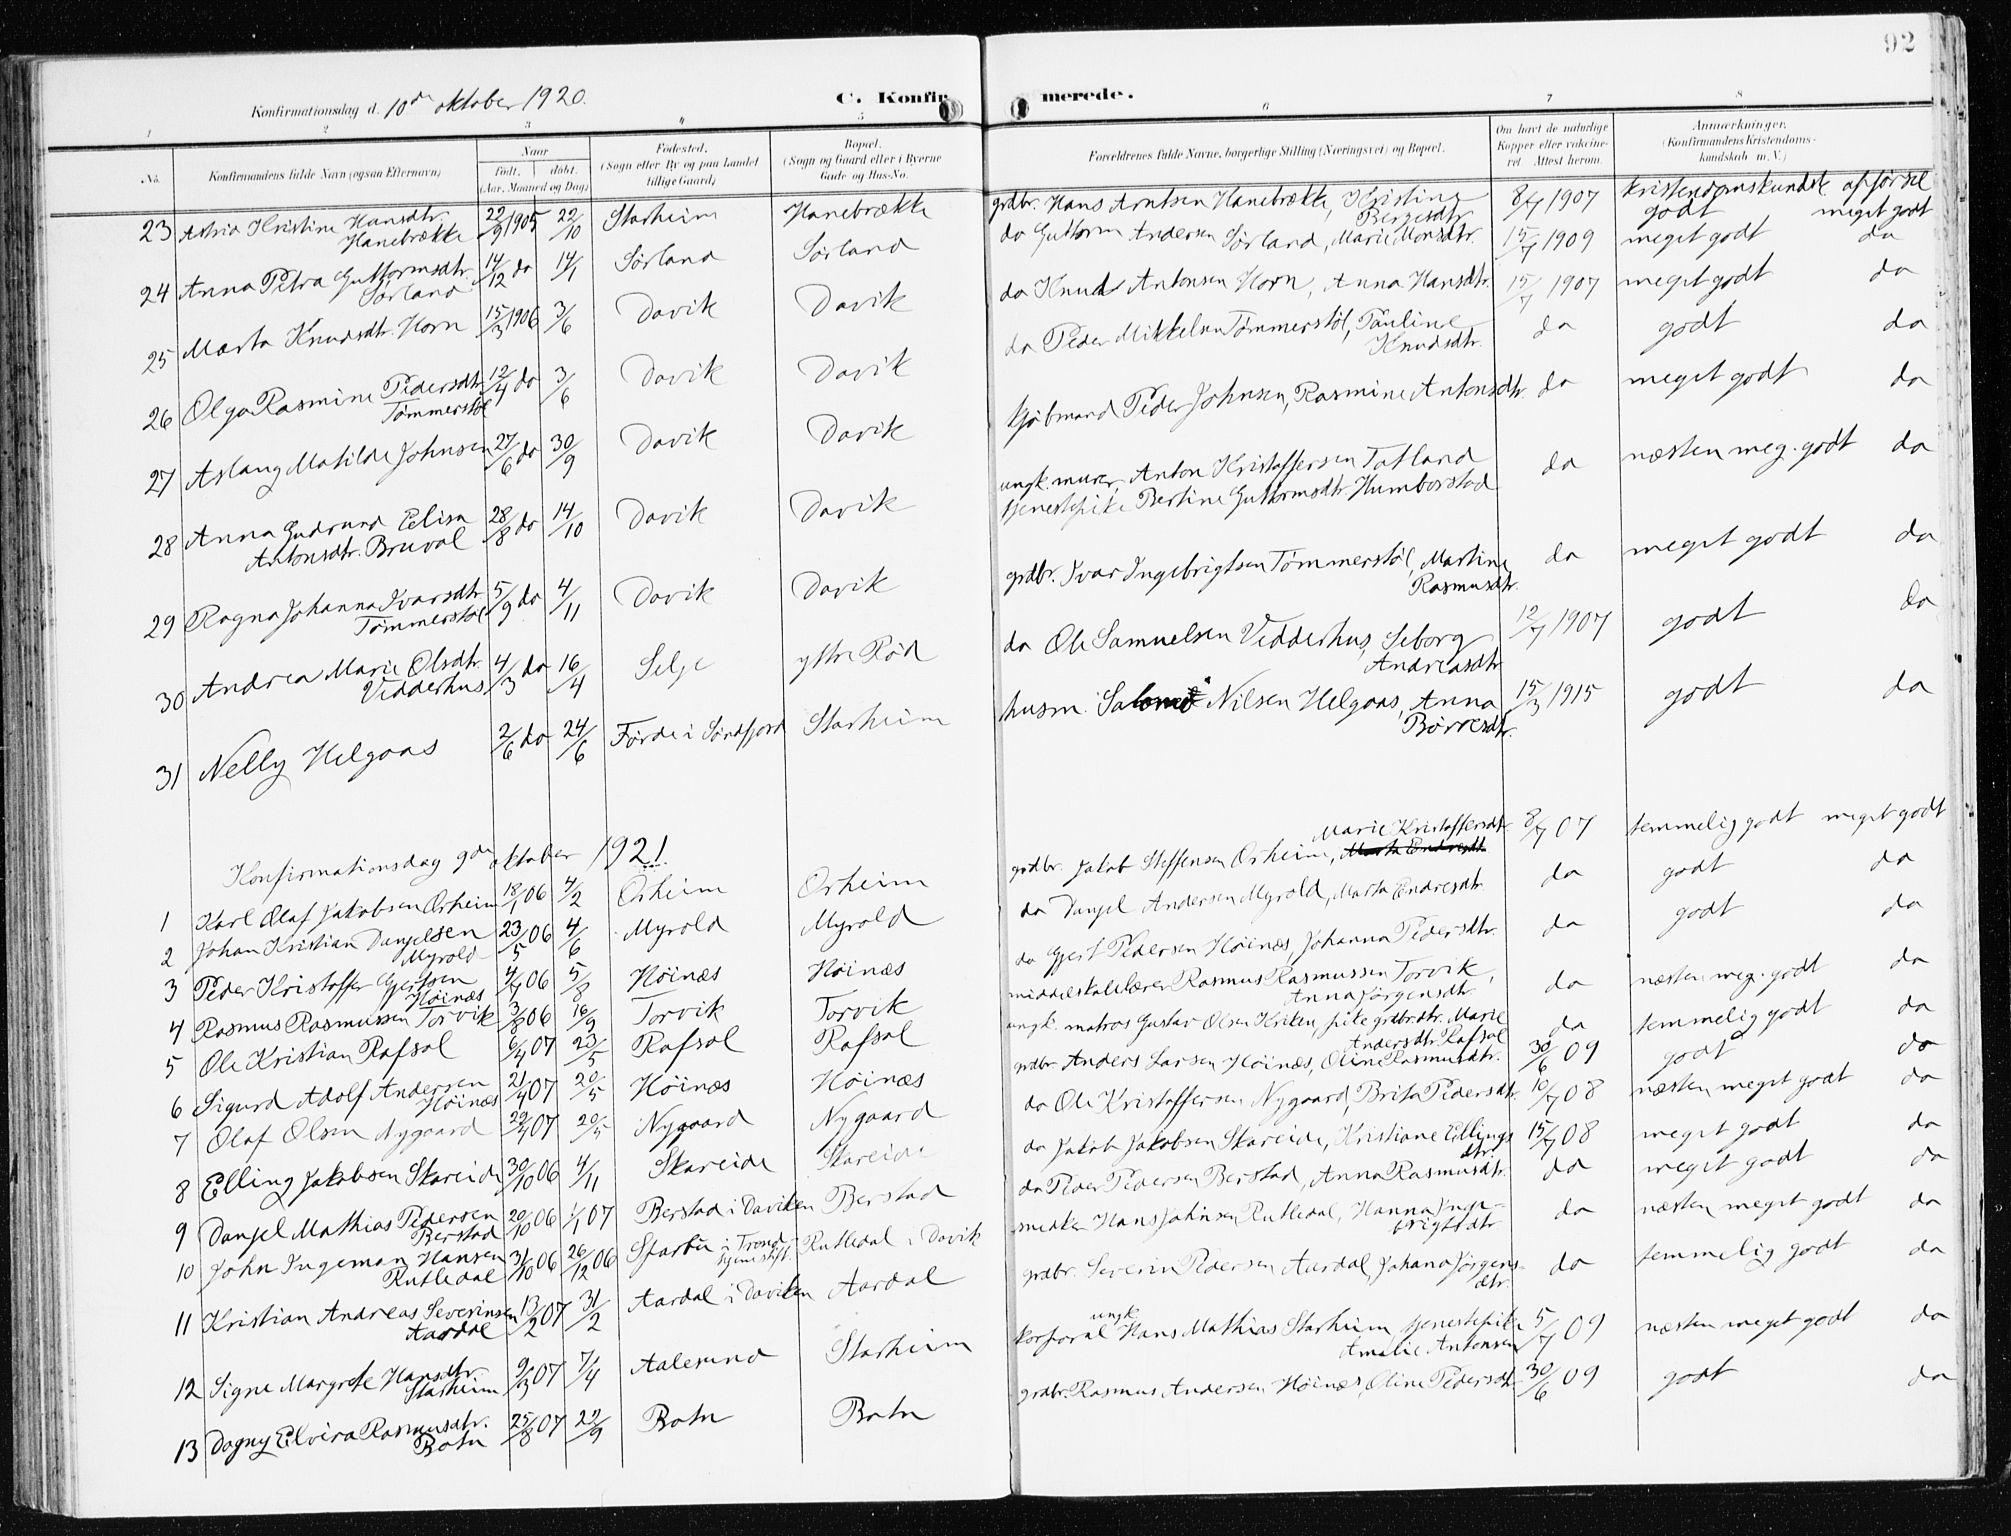 92
Konfirmationsdag d. 10de oktober 1920.
C. Konfirmerede.
1 2 3 4 5 6 7 8
No. Konfirmandens fulde Navn (ogsaa Efternavn) Naar født, døbt. (Aar, Maaned og Dag) Fødested, (Sogn eller By og paa Landet tillige Gaard) Bopæl. (Sogn og Gaard eller i Byerne Gade og Hus-No. Forældrenes fulde Navne, borgerlige Stilling (Næringsvei) og Bopæl. Om havt de naturlige Kopper eller vaccineret Attest herom. Anmærkninger. (Konfirmandens Kristendomskundskab m. V.)
kristendomskundsk. opførsel
23 Astrid Kristine Hansdtr. Hanebrække 22/9 1905 22/10 Starheim Hanebrække grdbr. Hans Arntsen Hanebrække, Kristine Bergesdtr. 8/7 1907 godt meget godt
24 Anna Petra Guttormsdtr. Sørland 14/12 do 14/1 Sørland Sørland do Guttorm Andersen Sørland, Marie Monsdtr. 15/7 1909 meget godt do
25 Marta Knudsdtr. Horn 15/3 1906 3/6 Davik Davik do Knud Antonsen Horn, Anna Hansdtr. 15/7 1907 meget godt do
26 Olga Rasmine Pedersdtr. Tømmerstøl 12/4 do 3/6 Davik Davik do Peder Mikkelsen Tømmerstøl, Pauline Knudsdtr. do godt do
27 Aslaug Matilde Johnsen 27/6 do 30/9 Davik Davik kjøbmand Peder Johnsen, Rasmine Antonsdtr. do meget godt do
28 Anna Gudrund Elisa Antonsdtr. Bruvol 28/8 do 14/10 Davik Davik ungk. murer Anton Kristoffersen Totland tjenestepike Bertine Guttormsdtr. Humborstad do næsten meg. godt do
29 Ragna Johanna Ivarsdtr. Tømmerstøl 5/9 do 4/11 Davik Davik grdbr. Ivar Ingebrigtsen Tømmerstøl, Martine Rasmusdtr. do meget godt do
30 Andrea Marie Olsdtr. Vedderhus 4/3 do 16/4 Selje ytre Rød do Ole Samuelsen Vedderhus, Seborg Andreasdtr 12/7 1907 godt do
31 Nelly Helgaas 2/6 do 24/6 Førde i Søndfjord Starheim husm. Nilsen Helgaas, Anna Børresdtr. 15/3 1915 godt do
Konfirmationsdag 9de oktober 1921.
1 Karl Olaf Jakobsen Orheim 18/1 06 4/2 Orheim Orheim grdbr. Jakob Steffensen Orheim, Marta Endresdt Marie Kristoffersdt. 8/7 07 temmelig godt meget godt
2 Johan Kristian Danjelsen Myrold 23/5 06 4/6 Myrold Myrold do Danjel Andersen Myrold, Marta Endresdtr. do godt do
3 Peder Kristoffer Gjertsen Høinæs 4/7 06 5/8 Høinæs Høinæs do Gjert Pedersen Høinæs, Johanna Pedersdtr. do godt do
4 Rasmus Rasmussen Torvik 3/8 06 16/9 Torvik Torvik middelskolelærer Rasmus Rasmussen Torvik, Anna Jørgensdtr. do næsten meg. godt do
5 Ole Kristian Rafsal 6/4 07 23/5 Rafsal Rafsal ungk. matros Gustav Olsen Kriken, pike grdbr.dtr. Marie Andersdtr. Rafsal do temmelig godt do
6 Sigurd Adolf Andersen Høinæs 21/4 07 20/5 Høinæs Høinæs grdbr. Anders Larsen Høinæs, Oline Rasmusdtr. 30/6 09 godt do
7 Olaf Olsen Nygaard 29/4 07 20/5 Nygaard Nygaard do Ole Kristoffersen Nygaard, Brita Pedersdtr. 10/7 08 næsten meget godt do
8 Elling Jakobsen Skareide 30/10 06 4/11 Skareide Skareide do Jakob Jakobsen Skareide, Kristiane Ellingsdtr. 15/7 08 meget godt do
9 Danjel Mathias Pedersen Berstad 20/10 06 1/1 07 Berstad i Daviken Berstad do Peder Pedersen Berstad, Anna Rasmusdtr. do meget godt do
10 John Ingeman Hansen Rutledal 31/10 06 26/12 06 Sparbu i Trondhjems stift. Rutledal i Davik snedker Hans Johnsen Rutledal, Hanna Ingebrigtsdtr do næsten meget godt do
11 Kristian Andreas Severinsen Aardal 13/2 07 31/2 Aardal i Daviken Aardal grdbr. Severin Pedersen Aardal, Johana Jørgensdtr. do temmelig godt do
12 Signe Margrete Hansdtr Starheim 9/3 07 7/4 Aalesund Starheim ungk. korporal Hans Mathias Starheim, tjenestepike Amalie Antonsen 5/7 09 næsten meget godt do
13 Dagny Elvira Rasmusdtr. Botn 25/8 07 22/9 Botn Botn grdbr. Rasmus Andersen Høinæs, Oline Pedersdtr 30/6 09 godt do